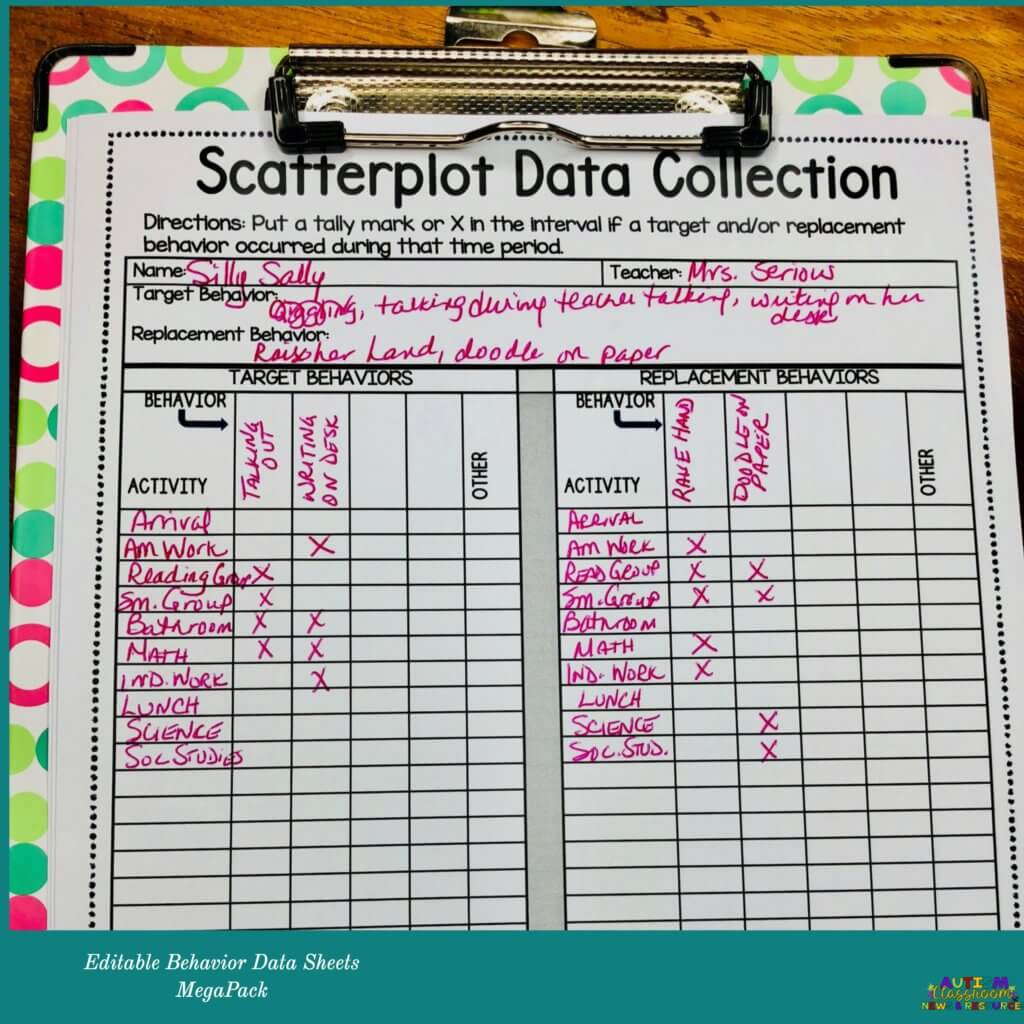 Scatterplot Data Collection
Directions: Put a tally mark or X in the interval if a target and/or replacement
behavior occurred during that time period.
Name: Silly Sally Teacher: Mrs. Serious
Target Behavior: Giggling, talking during teacher talking, writing on her
desk
Replacement Behavior:
her hand, doodle on paper
TARGET BEHAVIORS REPLACEMENT BEHAVIORS
BEHAVIOR TALKING OUT WRITING ON DESK OTHER BEHAVIOR HAND DOODLE ON PAPER OTHER
ACTIVITY ACTIVITY
Arrival ARRIVAL
Am Work X Am Work X
Reading Group X READ GROUP X X
Sm. Group X Sm. Group X X
Bathroom X X Bathroom
MATH X X MATH X
IND. WORK X IND. WORK X
LUNCH LUNCH
SCIENCE SCIENCE X
SOC. STUDIES SOC. STUD. X
Editable Behavior Data Sheets
MegaPack
AUTISM
Classroom
NEWS & RESOURCES